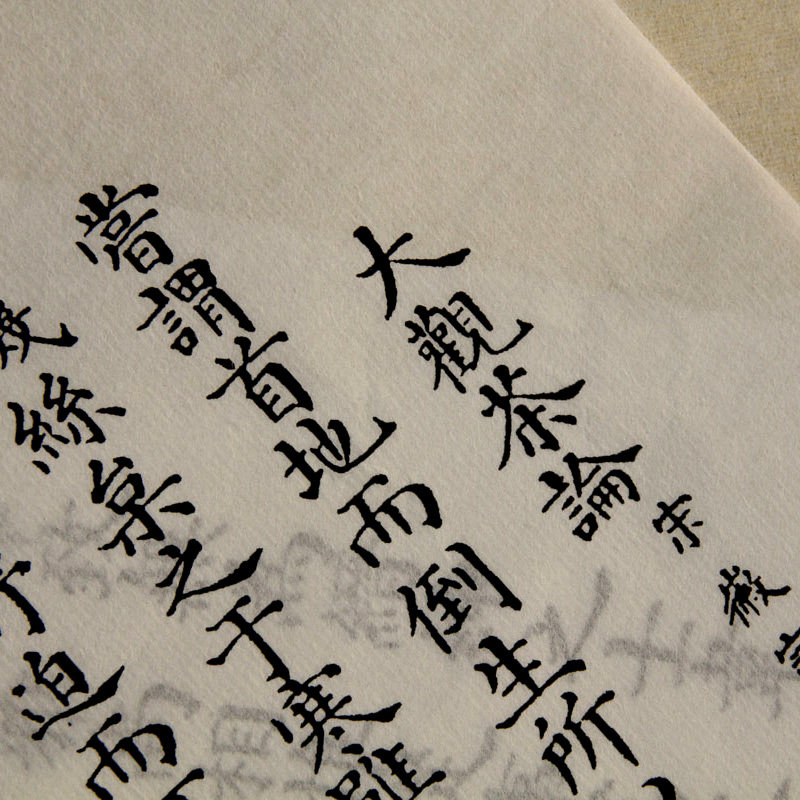 大觀茶論 宋徽
嘗謂首地而倒生所
絲枲之于寒雖
迫而